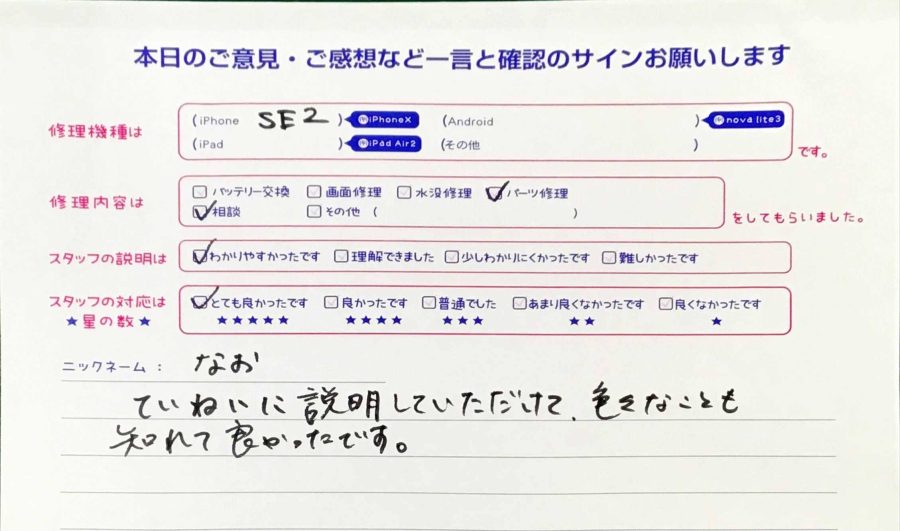 本日のご意見・ご感想など一言と確認のサインお願いします
修理機種は (iPhone SE2 ) iPhoneX (Android ) nova lite3
(iPad ) iPad Air2 (その他 ) です。
修理内容は バッテリー交換 画面修理 水没修理 パーツ修理
相談 その他 ( ) をしてもらいました。
スタッフの説明は わかりやすかったです 理解できました 少しわかりにくかったです 難しかったです
スタッフの対応は とても良かったです 良かったです 普通でした あまり良くなかったです 良くなかったです
★星の数★ ★★★★★ ★★★★ ★★★ ★★ ★
ニックネーム： なお
ていねいに説明していただけて、色々なことも
知れて良かったです。